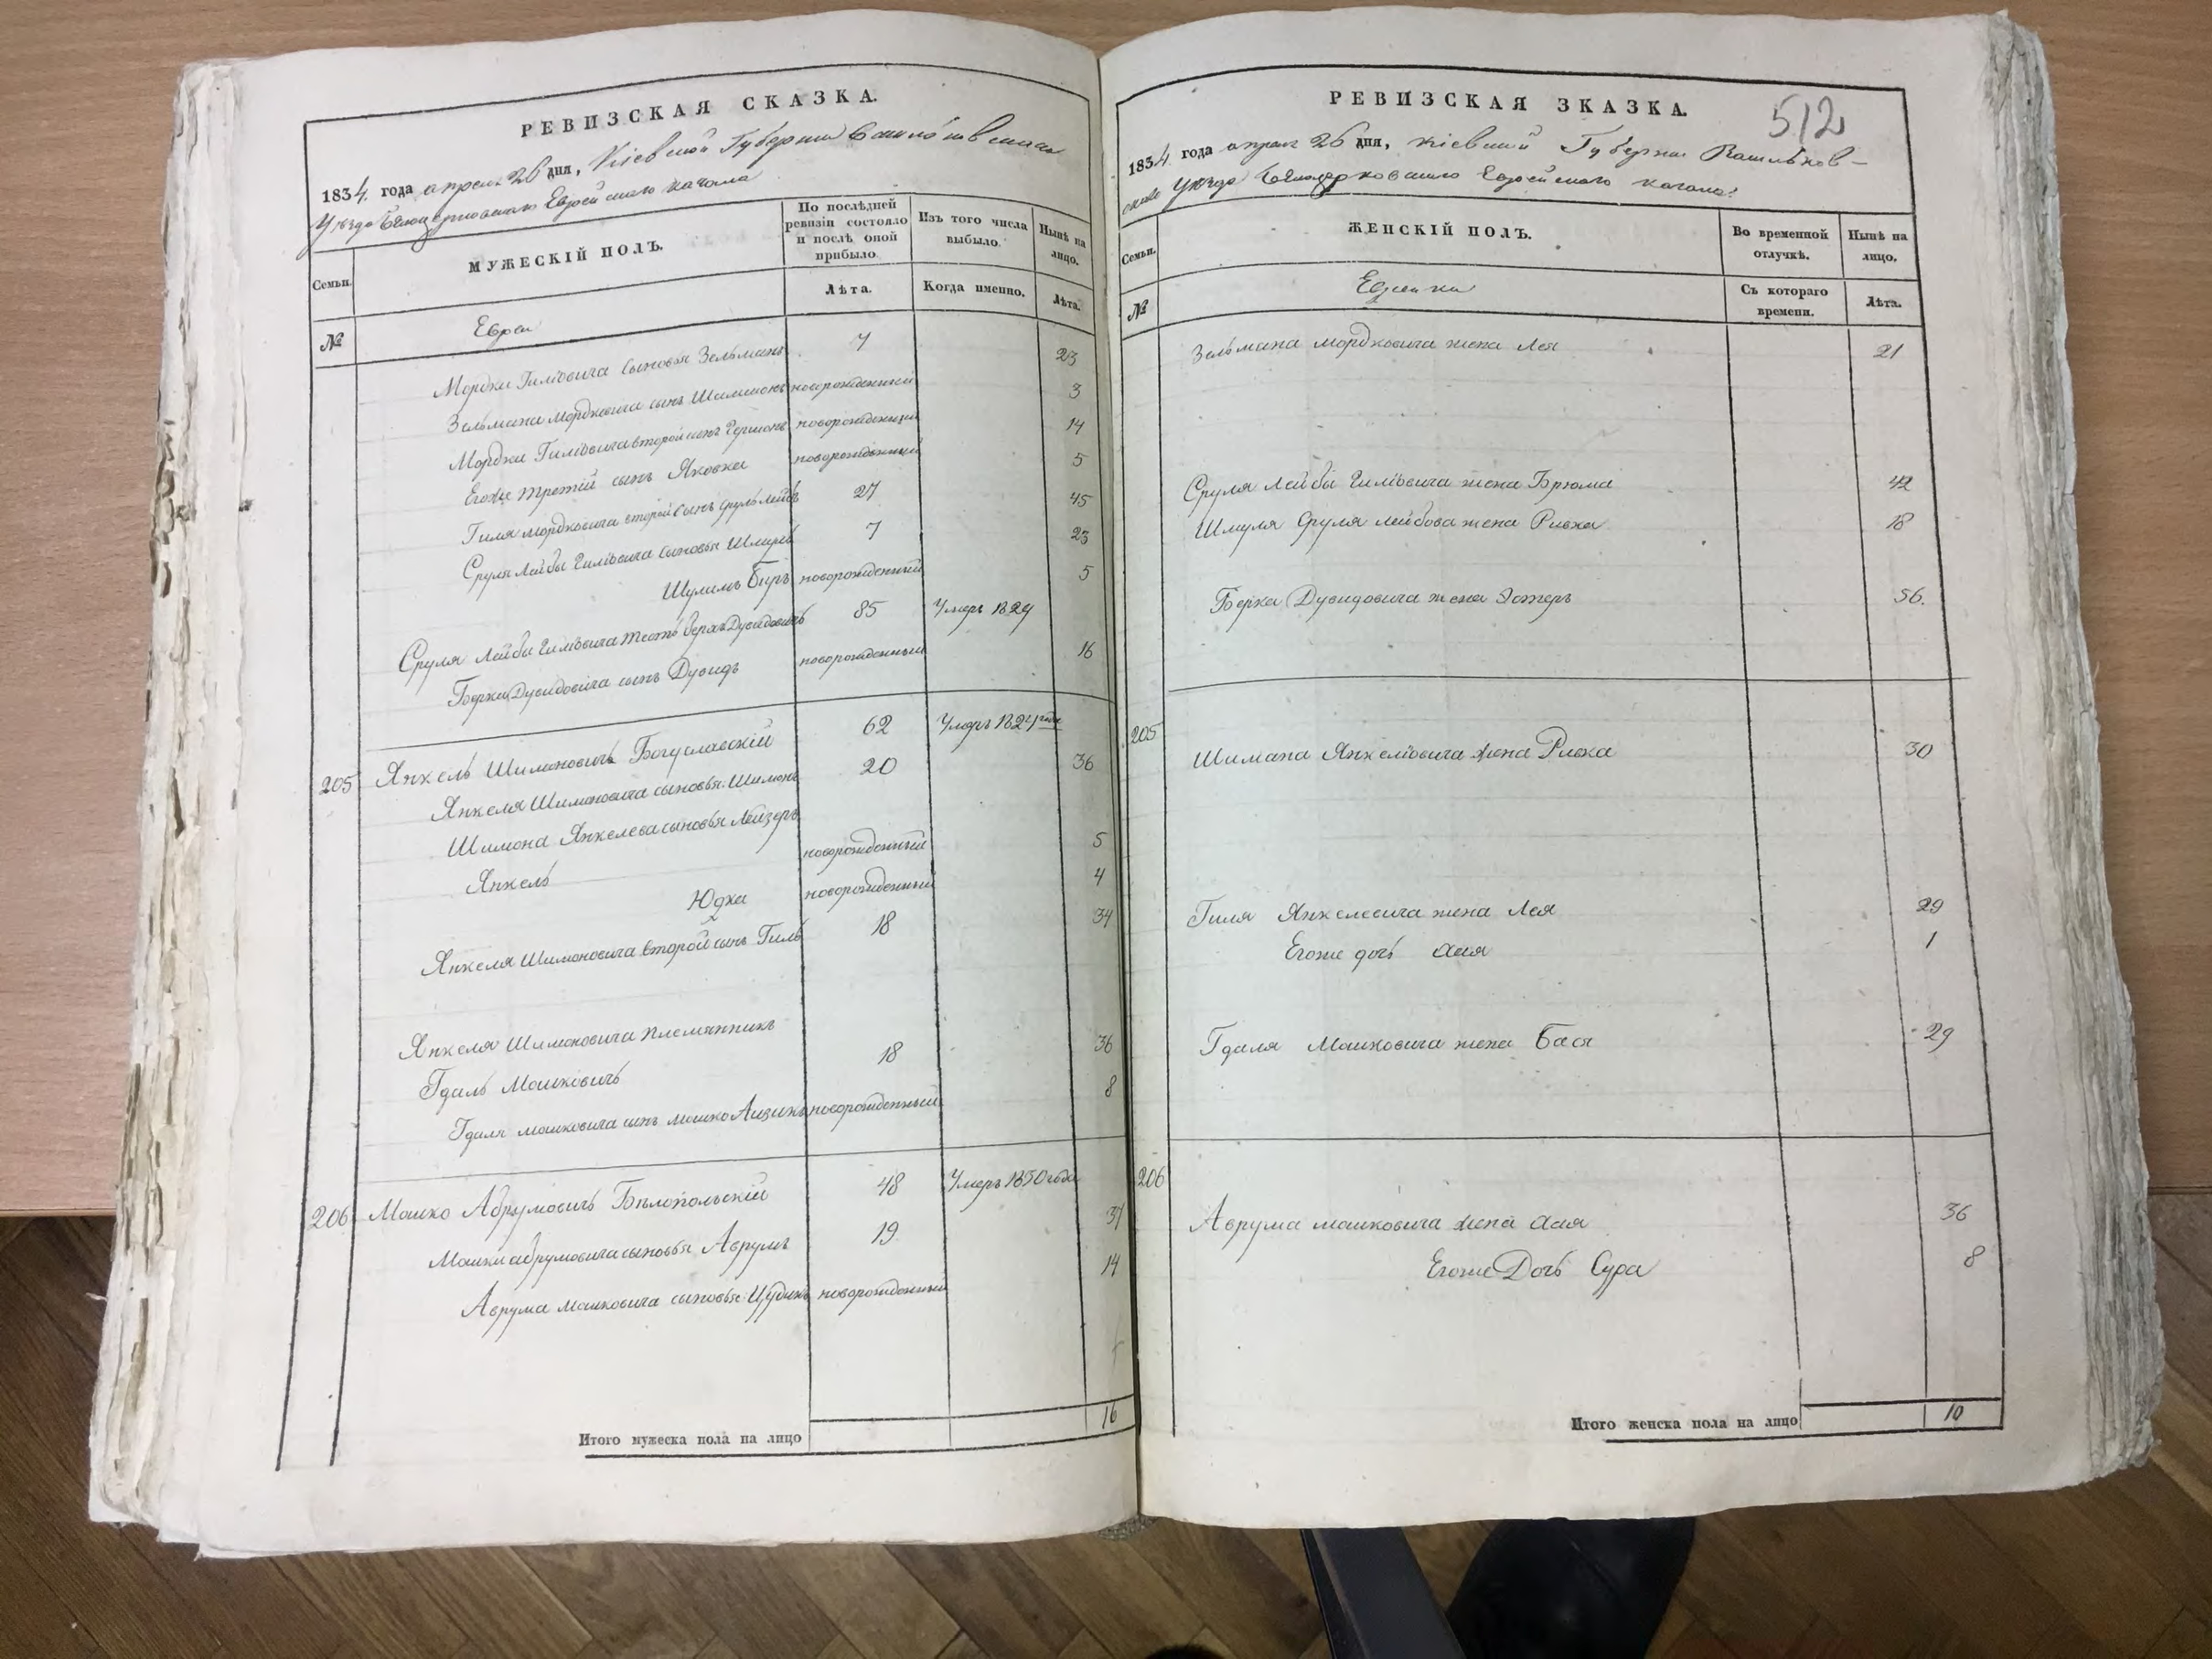 РЕВИЗСКАЯ СКАЗКА.
1834 года апреля 26 дня, Кіевской Губерніи Васильковскаго
Уѣзда Бѣлоцерковскаго Еврейскаго кагала
Семьи.
МУЖЕСКІЙ ПОЛЪ.
По послѣдней ревизіи состояло и послѣ оной прибыло.
Изъ того числа выбыло.
Нынѣ на лицо.
№
Лѣта.
Когда именно.
Лѣта.
Евреи
Мордки Гилiовича сыновья Зельманъ 7 23
Зельмана Мордковича сынъ новорожденный 3
Мордки Гилiовича второй сынъ Гершонъ новорожденный 14
Егоже третій сынъ Яковка новорожденный 5
Гиля Мордковича второй сынъ Сруль Лейба 27 45
Сруля Лейбы Гилiовича сыновья Шмуль 7 23
Шулимъ Беръ новорожденный 5
Сруля Лейбы Гилiовича тесть Берка Дувидовичъ 85 Умеръ 1829
Берки Дувидовича сынъ Дувидъ новорожденный 16
205 Янкель Шимоновичъ Богуславскій 62 Умеръ 1824 года
Янкеля Шимоновича сыновья: Шимонъ 20 36
Шимона Янкелева сыновья Лейзеръ
Янкель новорожденный 5
Юдка новорожденный 4
Янкеля Шимоновича второй сынъ Гиль 18 34
Янкеля Шимоновича племянникъ
Гдаль Мошковичъ 18 36
Гдаля Мошковича сынъ Мошко Аизикъ новорожденный 8
206 Мошко Абрумовичъ Бѣлопольскій 48 Умеръ 1830 года
Мошки Абрумовича сыновья Аврумъ 19 37
Аврума Мошковича сыновья новорожденный 14
Итого мужеска пола на лицо 16
РЕВИЗСКАЯ ЗКАЗКА.
512
1834 года апреля 26 дня, Кіевской Губерніи Васильков-
скаго Уѣзда Бѣлоцерковскаго Еврейскаго кагала:
Семьи.
ЖЕНСКІЙ ПОЛЪ.
Во временной отлучкѣ.
Нынѣ на лицо.
№
Еврейки
Съ котораго времени.
Лѣта.
Зельмана Мордковича жена Лея 21
Сруля Лейбы Гилiовича жена Брюма 42
Шмуля Сруля Лейбова жена Ривка 18
Берка Дувидовича жена Эстеръ 56.
205
Шимана Янкелiовича жена Ривка 30
Гиля Янкелевича жена Лея 29
Егоже дочь Хая 1
Гдаля Мошковича жена Бася 29
206
Аврума Мошковича жена Хая 36
Егоже Дочь Сура 8
Итого женска пола на лицо 10